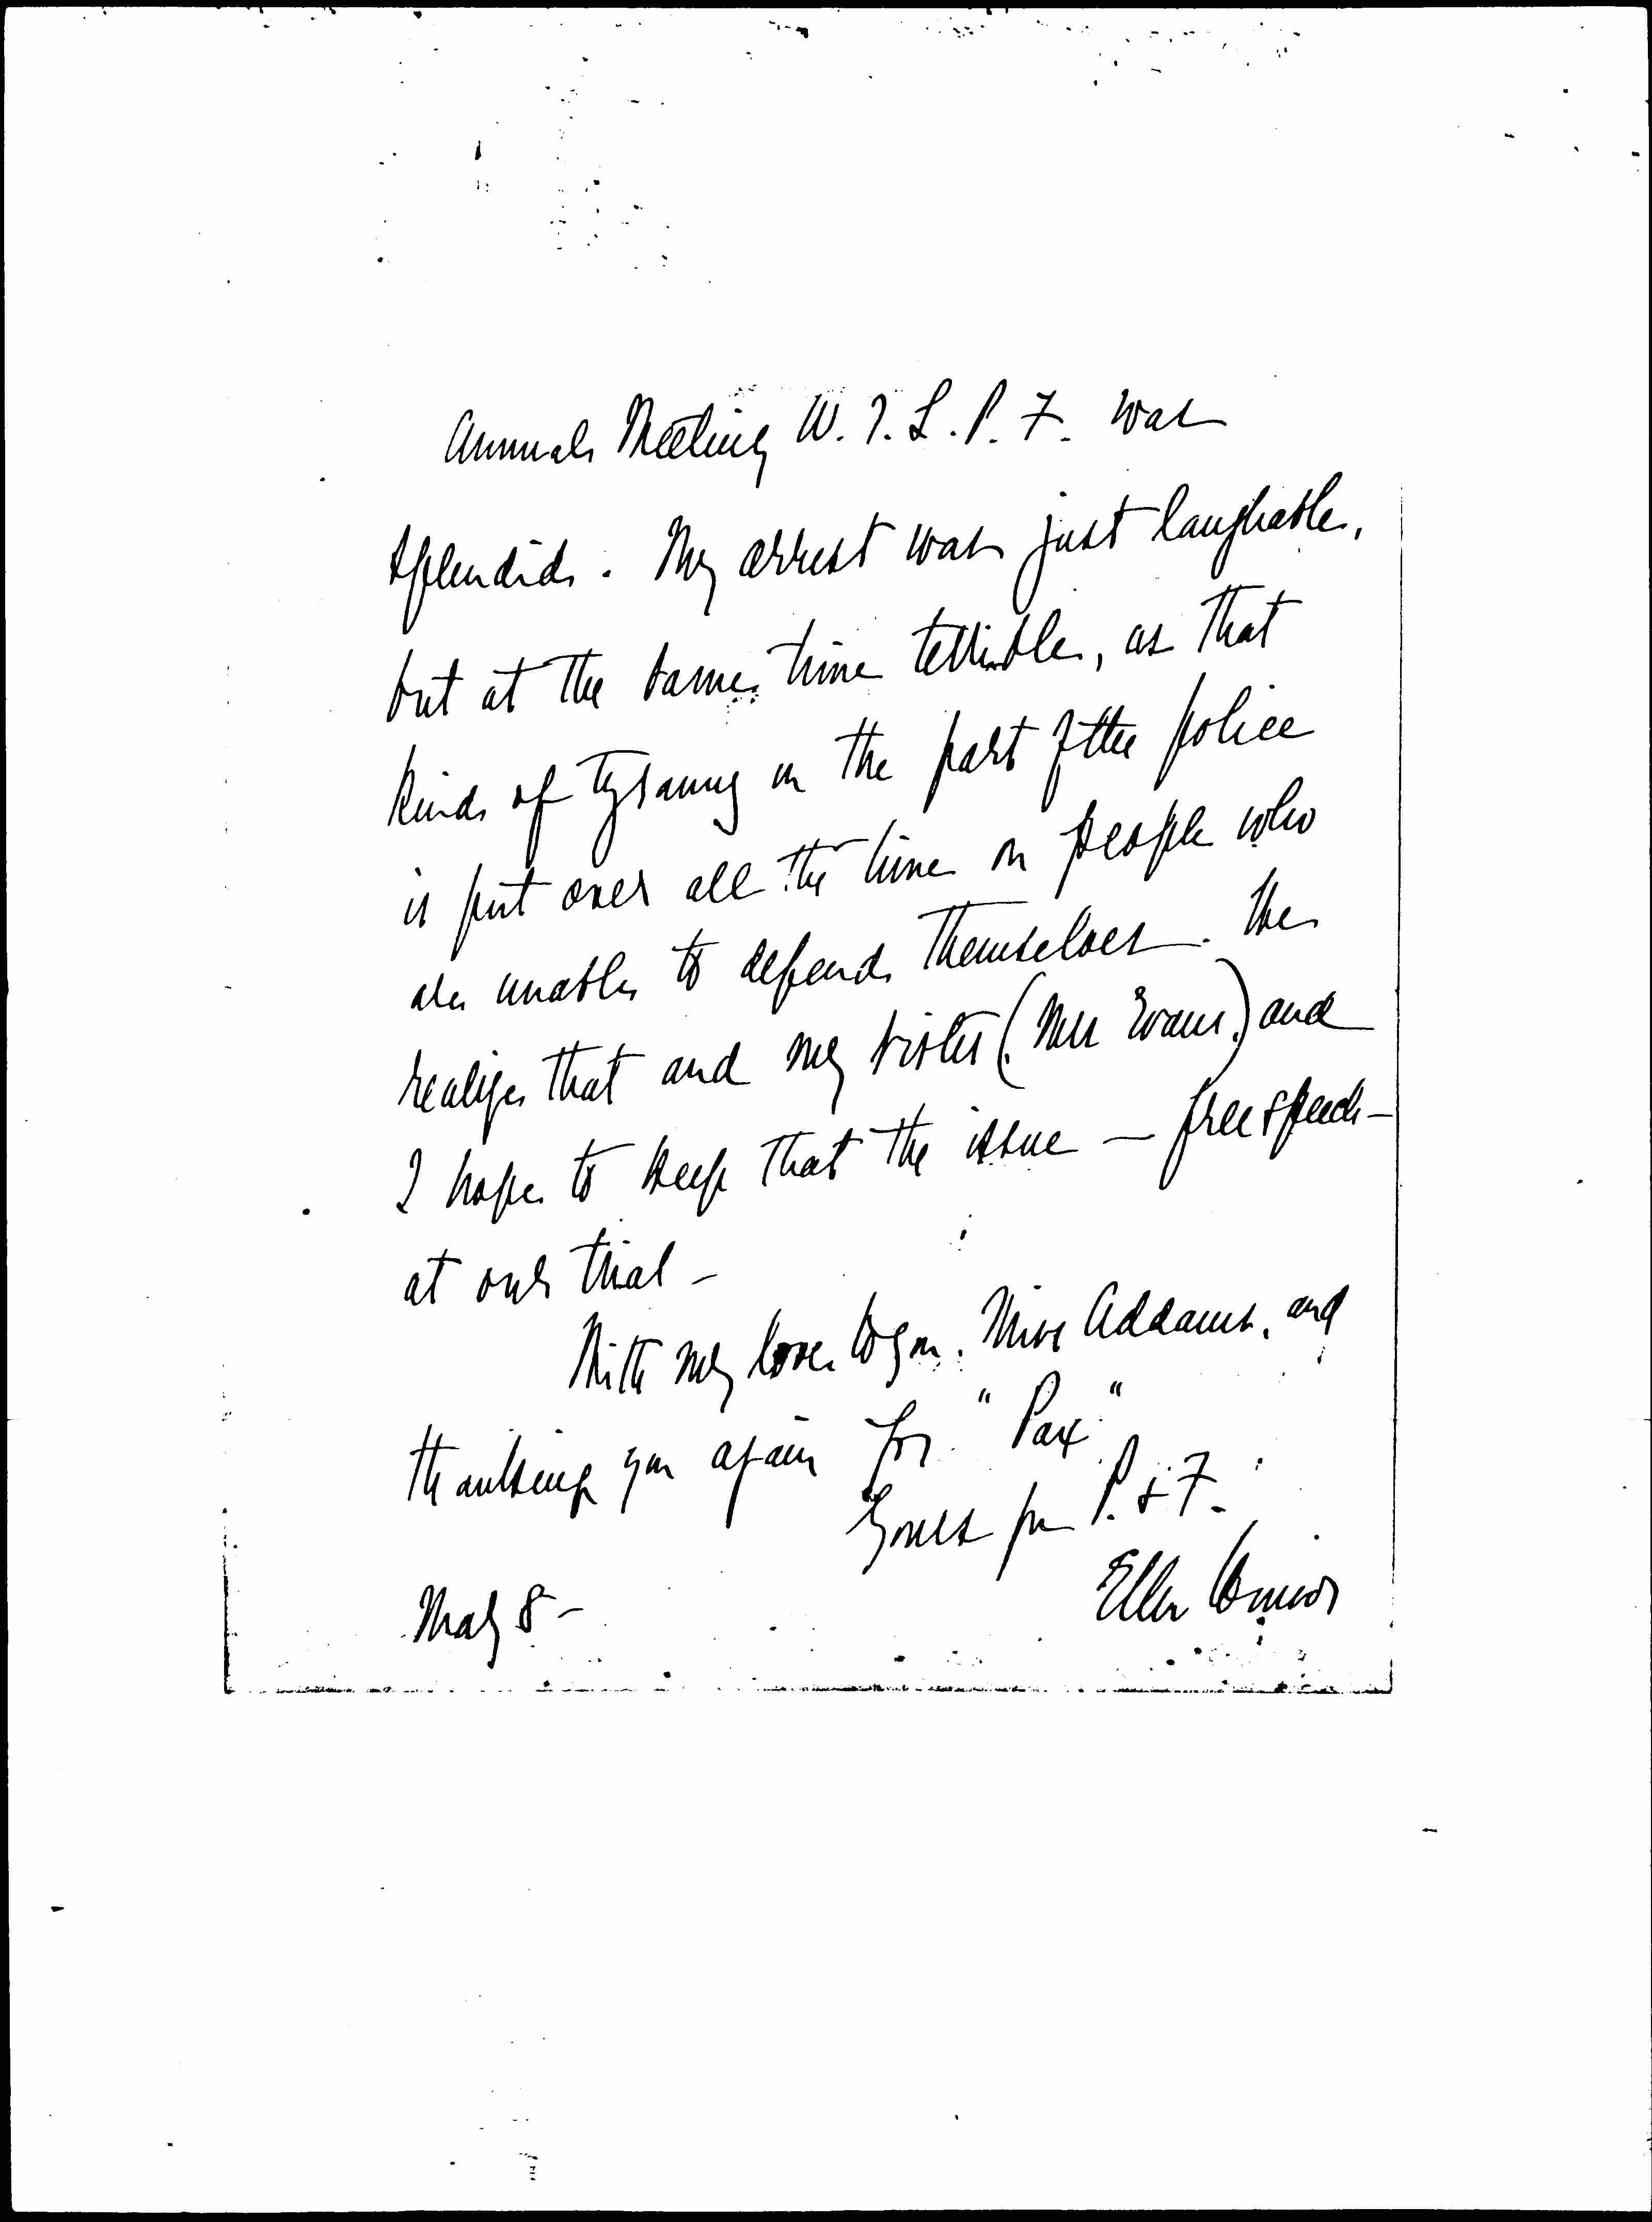 Annual Meeting W. I. L. P. F. was
splendid. My arrest was just laughable,
but at the same time terrible, as that
kind of tyranny on the part of the police
is put over all the time on people who
are unable to defend themselves. We
realize that and my sister (Mrs Evans) and
I hope to keep that the issue — free speech —
at our trial —
With my love to you, Miss Addams, and
thanking you again for "Pax"
Yours for P. & F.
Ellen Winsor
May 8 —